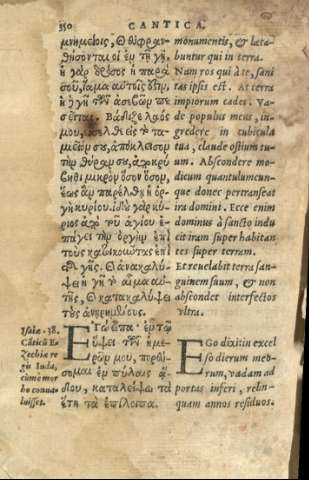 350 CANTICA.
μνημείοις, καὶ εὐφραν-
θήσονται οἱ ἐν τῇ γῇ.
ἡ γὰρ δρόσος ἡ παρὰ
σοῦ, ἴαμα αὐτοῖς ἐστιν,
ἡ δὲ γῆ τῶν ἀσεβῶν πε-
σεῖται. Βάδιζε λαός
μου, εἴσελθε εἰς τὰ τα-
μιεῖά σου, ἀπόκλεισον
τὴν θύραν σου, ἀποκρύ-
βηθι μικρὸν ὅσον ὅσον,
ἕως ἂν παρέλθῃ ἡ ὀρ-
γὴ κυρίου. ἰδοὺ γὰρ κύ-
ριος ἀπὸ τοῦ ἁγίου ἐ-
πάγει τὴν ὀργὴν ἐπὶ
τοὺς κατοικοῦντας ἐπὶ
τῆς γῆς. καὶ ἀνακαλύ-
ψει ἡ γῆ τὸ αἷμα αὐ-
τῆς, καὶ οὐ κατακαλύψει
τοὺς ἀνῃρημένους.
monumentis, & læta-
buntur qui in terra.
Nam ros qui à te, sani
tas ipsis est. At terra
impiorum cades. Va-
de populus meus, in-
gredere in cubicula
tua, claude ostium tu-
um. Abscondere mo-
dicum quantulumcun-
que donec pertranseat
ira domini. Ecce enim
dominus à sancto indu
cit iram super habitan
tes super terram.
Et reuelabit terra san-
guinem suum, & non
abscondet interfectos
vltra.
Isaiæ .38.
Cāticū E-
zechiæ re
gis Iuda,
cùm è mor
bo conua-
luisset.
ἘΓὼ εἶπα· ἐν τῷ
ὕψει τῶν ἡμε-
ρῶν μου, πορεύ-
σομαι ἐν πύλαις ᾅ-
δου, καταλείψω τὰ
ἔτη τὰ ἐπίλοιπα.
EGo dixi in excel
so dierum meo-
rum, vadam ad
portas inferi, relin-
quam annos residuos.